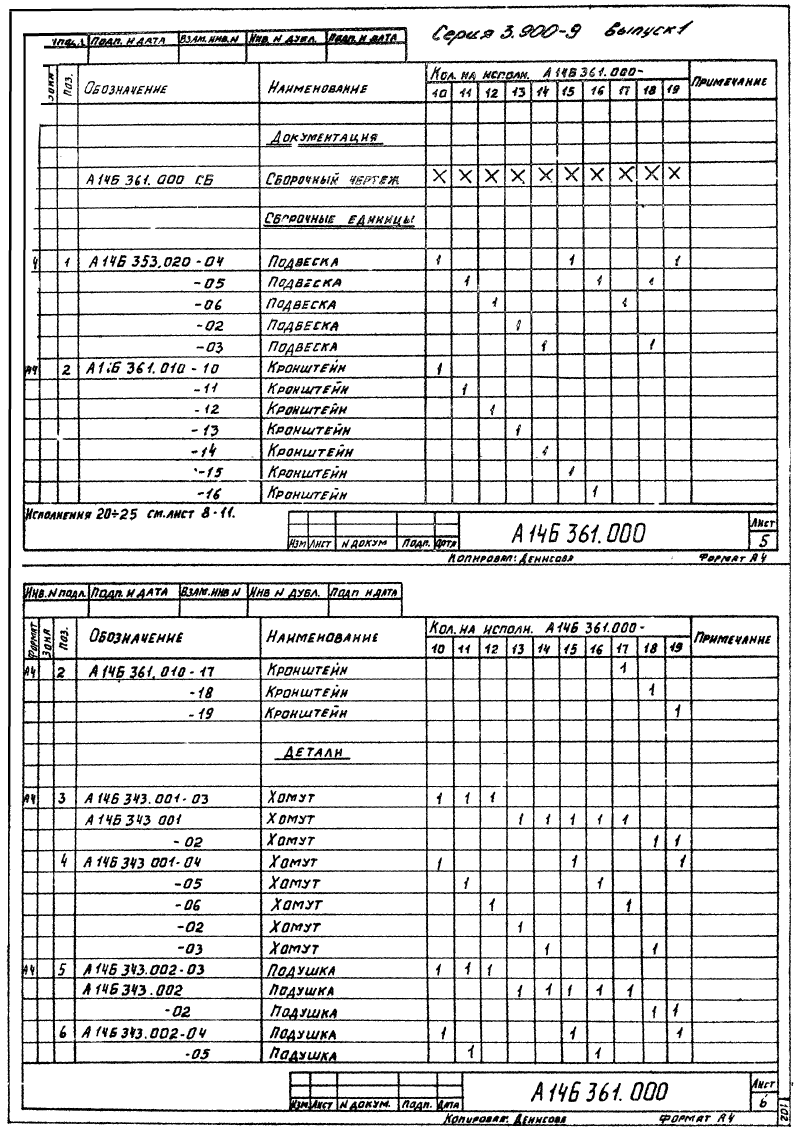 Серия 3.900-9 Выпуск 1
Подп. и дата Взам. инв. N Инв. N дубл. Подп. и дата
Зона Поз. Обозначение Наименование Кол. на исполн. А14Б361.000- Примечание
10 11 12 13 14 15 16 17 18 19
Документация
А14Б 361.000 СБ Сборочный чертеж X X X X X X X X X X
Сборочные единицы
4 1 А14Б 353.020-04 Подвеска 1 1 1
-05 Подвеска 1 1 1
-06 Подвеска 1 1
-02 Подвеска 1
-03 Подвеска 1 1
А4 2 А14Б 361.010-10 Кронштейн 1
-11 Кронштейн 1
-12 Кронштейн 1
-13 Кронштейн 1
-14 Кронштейн 1
-15 Кронштейн 1
-16 Кронштейн 1
Исполнения 20÷25 см. лист 8-11.
Изм Лист N докум Подп. Дата А14Б 361.000 Лист 5
Копировал: Денисова Формат А4
Инв. N подл. Подп. и дата Взам. инв N Инв N дубл. Подп и дата
Формат Зона Поз. Обозначение Наименование Кол. на исполн. А14Б 361.000- Примечание
10 11 12 13 14 15 16 17 18 19
А4 2 А14Б 361.010-17 Кронштейн 1
-18 Кронштейн 1
-19 Кронштейн 1
Детали
А4 3 А14Б 343.001-03 Хомут 1 1 1
А14Б 343 001 Хомут 1 1 1 1 1
-02 Хомут 1 1
4 А14Б 343 001-04 Хомут 1 1 1
-05 Хомут 1 1
-06 Хомут 1 1
-02 Хомут 1
-03 Хомут 1 1
А4 5 А14Б 343.002-03 Подушка 1 1 1
А14Б 343.002 Подушка 1 1 1 1 1
-02 Подушка 1 1
6 А14Б 343.002-04 Подушка 1 1 1
-05 Подушка 1 1
Изм. Лист N докум. Подп. Дата А14Б 361.000 Лист 6
Копировал: Денисова Формат А4